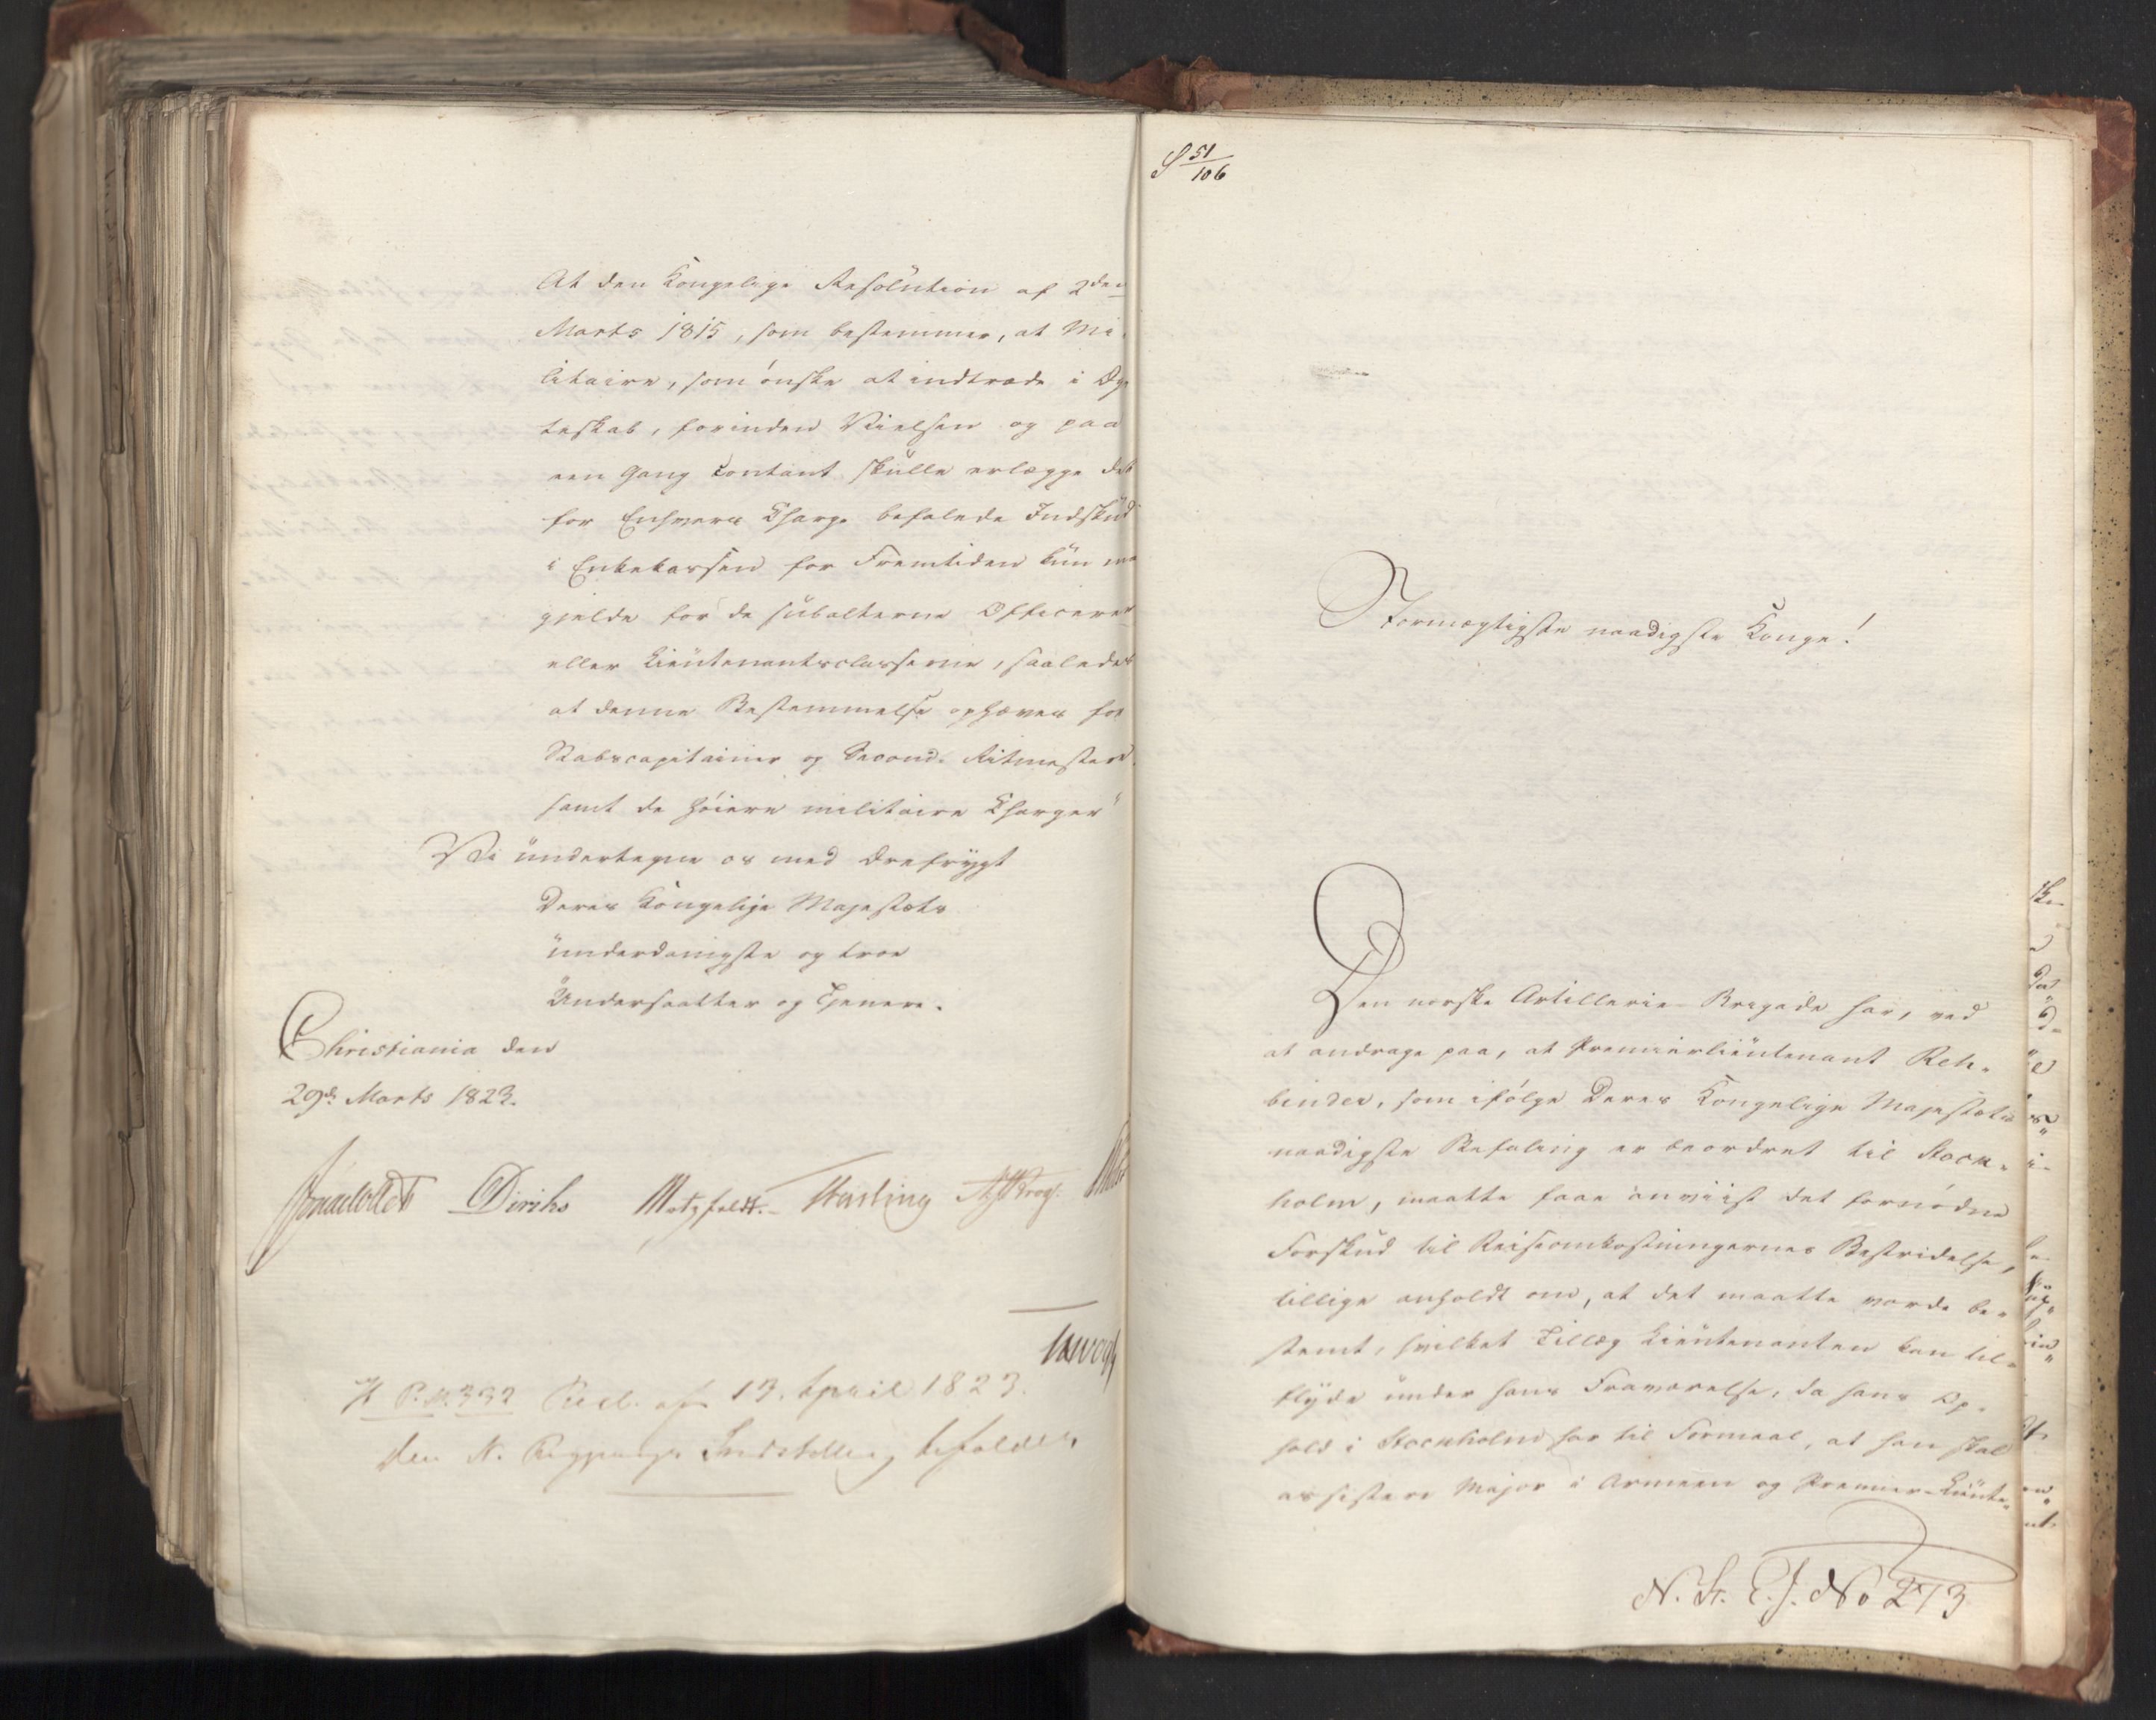 At den Kongelige Resolution af 2den
Marts 1815, som bestemmer, at Mi-
litaire, som ønske at indtræde i Æg-
teskab, forinden Vielsen og paa
een Gang contant skulle erlægge det
for Enhvers Charge befalede Indskud
i Enkekassen for Fremtiden kun maa
gjelde for de subalterne Officerer
eller Lieutenantsclasserne, saaledes
at denne Bestemmelse ophæves for
Stabscapitainer og Second-Ritmestere
samt de høiere militaire Charger"
Vi undertegne os med Ærefrygt
Deres Kongelige Majestæts
underdanigste og troe
Undersaatter og Tjenere.
Christiania den
29de Marts 1823.
Diriks Motzfeldt. Fasting
P. M. 332 Resol. af 13. April 1823.
den N. Regjerings Indstilling bifaldes
S 51/106
Stormægtigste naadigste Konge!
Den norske Artillerie-Brigade har, ved
at andrage paa, at Premierlieutenant Reh-
binder, som ifølge Deres Kongelige Majestæts
naadigste Befaling er beordret til Stock-
holm, maatte faae anviist det fornødne
Forskud til Reiseomkostningernes Bestridelse,
tillige anholdt om, at det maatte vorde be-
stemt, hvilket Tillæg Lieutenanten kan til-
flyde under hans Fraværelse, da hans Op-
hold i Stockholm har til Formaal, at han skal
assistere Major i Armeen og Premier-Lieute-
N. St. E. J. No 273